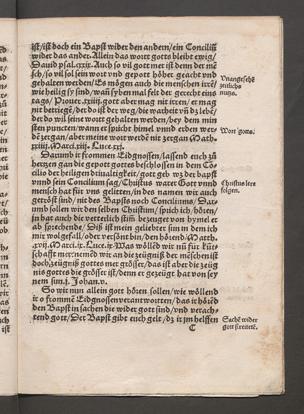 ist/ ist doch ein Bapst wider den andern/ ein Conciliũ
wider das ander. Allein das wort gotts bleibt ewig/
David psal. cxix. Auch so vil gott mer ist denn der mẽ
sch/ so vil sol sein wort vnd gepott höher geacht vnd
gehalten werden/ Es mögen auch die menschen irrẽ/
wie heilig sy sind/
tags/ Prouer. xxiiij. gott aber mag nit irren/ er mag
nit betriegẽ/ der do ist der weg/ die warheit vñ dz lebẽ/
der do wil seine wort gehalten werden/ bey dem min
sten puncten/ wann er spricht himel vnnd erden werdẽ
zergan/ aber meine wort werdẽ nit zergan Math.
xxiiij. Marci. xiij. Luce. xxj.
Darumb ir frommen Eidgnossen/ lassend euch zů
hertzen gan die gepott gottes beschlossen in dem Cõ
cilio der heiligen driualtigkeit/ gott geb wz der bapst
vnnd sein Concilium sag/ Christus warer Gott vnnd
mensch hat für vns gelitten/ in des namen wir auch
getröst sind/ nit des Bapsts noch Conciliums/ Dar
umb sollen wir den selben Christum/ sprich ich/ hören/
in hat auch die veterlich stim bezeuget von hymel er
ab sprechende/ Diß ist mein geliebter sun in dem ich
mir wolgefall/ oder versönt bin/ den hörend Math.
xvij. Marci. ix. Luce. ix. Was wöllẽd wir nũ für
schafft mer nemẽd wir an die zeügniß der mẽschen ist
doch zeügniß gottes ener größer/ das ist aber die zeüg
nis gottes die größer ist/ denn er gezeügt hat von sey
nem sun. j. Johan. v.
So wir nun allein gott hören sollen/ wie wöllend
ir o frommẽ Eidgnossen verantwourtten/ das ir hörẽd
den Bapst in sachen die wider gott sind/ vnd verach
tend gott/ Der Bapst gibt euch gelt/ dz ir im helffen
C
zeitlichs
Wort gotts.
Christus lere
folgen.
Sachẽ wider
gott